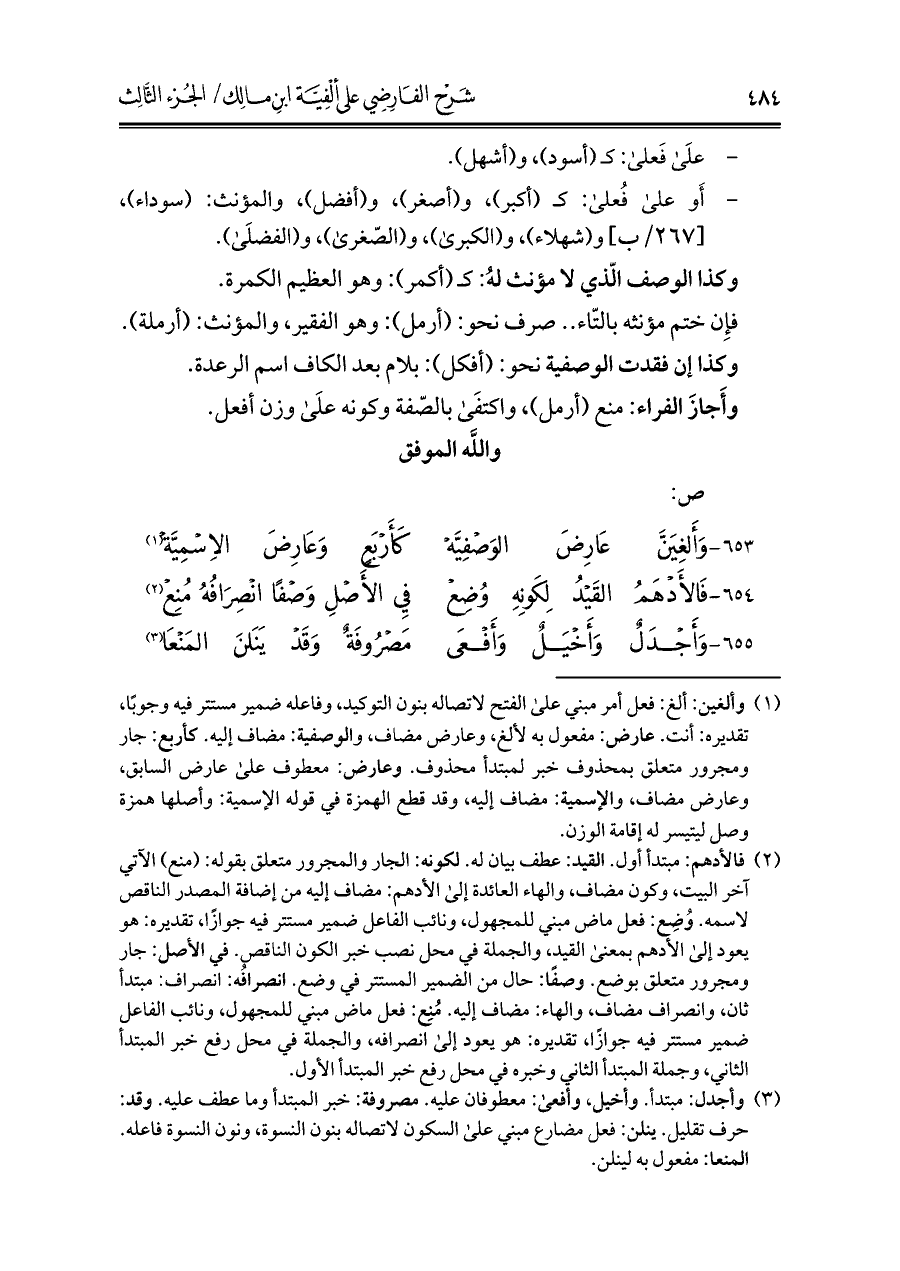 ٤٨٤ شَرْح الفَارِضِي على ألْفِيَّة ابنِ مَالِك/ الجُزء الثَّالِث
- علَىٰ فَعلىٰ: كـ (أسود)، و(أشهل).
- أَو علىٰ فُعلىٰ: كـ (أكبر)، و(أصغر)، و(أفضل)، والمؤنث: (سوداء)،
[٢٦٧/ ب] و(شهلاء)، و(الكبرىٰ)، و(الصّغرىٰ)، و(الفضلَىٰ).
وكذا الوصف الّذي لا مؤنث لهُ: كـ (أكمر): وهو العظيم الكمرة.
فإِن ختم مؤنثه بالتّاء.. صرف نحو: (أرمل): وهو الفقير، والمؤنث: (أرملة).
وكذا إن فقدت الوصفية نحو: (أفكل): بلام بعد الكاف اسم الرعدة.
وأَجازَ الفراء: منع (أرمل)، واكتفَىٰ بالصّفة وكونه علَىٰ وزن أفعل.
واللَّه الموفق
ص:
٦٥٣-وَأَلْغِيَنَّ عَارِضَ الوَصْفِيَّهْ كَأَرْبَعٍ وَعَارِضَ الإِسْمِيَّهْ(١)
٦٥٤-فَالأَدْهَمُ القَيْدُ لِكَونِهِ وُضِعْ فِي الأَصْلِ وَصْفًا انْصِرَافُهُ مُنِعْ(٢)
٦٥٥-وَأَجْـدَلٌ وَأَخْيَـلٌ وَأَفْـعَى مَصْرُوفَةٌ وَقَدْ يَنَلنَ المَنْعَا(٣)
(١) وألغين: ألغ: فعل أمر مبني علىٰ الفتح لاتصاله بنون التوكيد، وفاعله ضمير مستتر فيه وجوبًا،
تقديره: أنت. عارض: مفعول به لألغ، وعارض مضاف، والوصفية: مضاف إليه. كأربع: جار
ومجرور متعلق بمحذوف خبر لمبتدأ محذوف. وعارض: معطوف علىٰ عارض السابق،
وعارض مضاف، والإسمية: مضاف إليه، وقد قطع الهمزة في قوله الإسمية: وأصلها همزة
وصل ليتيسر له إقامة الوزن.
(٢) فالأدهم: مبتدأ أول. القيد: عطف بيان له. لكونه: الجار والمجرور متعلق بقوله: (منع) الآتي
آخر البيت، وكون مضاف، والهاء العائدة إلىٰ الأدهم: مضاف إليه من إضافة المصدر الناقص
لاسمه. وُضِع: فعل ماض مبني للمجهول، ونائب الفاعل ضمير مستتر فيه جوازًا، تقديره: هو
يعود إلىٰ الأدهم بمعنىٰ القيد، والجملة في محل نصب خبر الكون الناقص. في الأصل: جار
ومجرور متعلق بوضع. وصفًا: حال من الضمير المستتر في وضع. انصرافُه: انصراف: مبتدأ
ثان، وانصراف مضاف، والهاء: مضاف إليه. مُنِع: فعل ماض مبني للمجهول، ونائب الفاعل
ضمير مستتر فيه جوازًا، تقديره: هو يعود إلىٰ انصرافه، والجملة في محل رفع خبر المبتدأ
الثاني، وجملة المبتدأ الثاني وخبره في محل رفع خبر المبتدأ الأول.
(٣) وأجدل: مبتدأ. وأخيل، وأفعىٰ: معطوفان عليه. مصروفة: خبر المبتدأ وما عطف عليه. وقد:
حرف تقليل. ينلن: فعل مضارع مبني علىٰ السكون لاتصاله بنون النسوة، ونون النسوة فاعله.
المنعا: مفعول به لينلن.